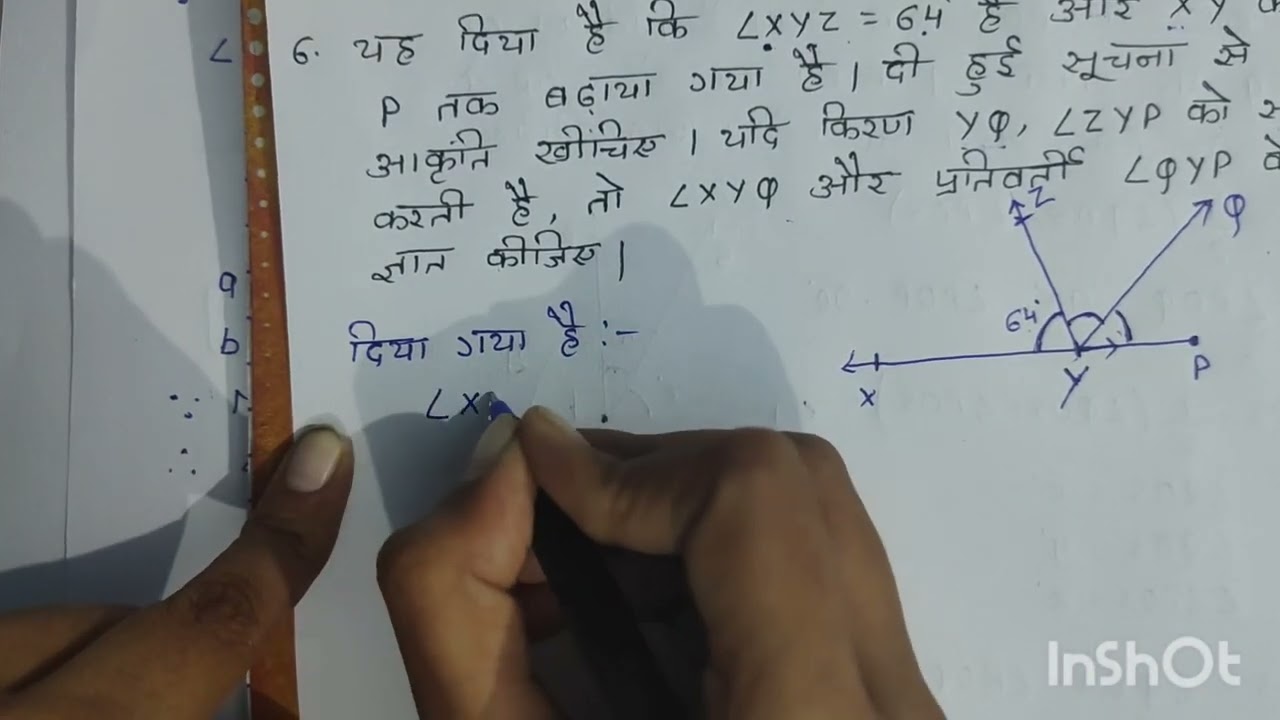 6. यह दिया है कि ∠XYZ = 64° है और XY
P तक बढ़ाया गया है। दी हुई सूचना से
आकृति खींचिए। यदि किरण YQ, ∠ZYP को
करती है, तो ∠XYQ और प्रतिवर्ती ∠QYP
ज्ञात कीजिए।
Z
Q
64°
X
Y
P
दिया गया है :-
∠X
a
b
InShOt